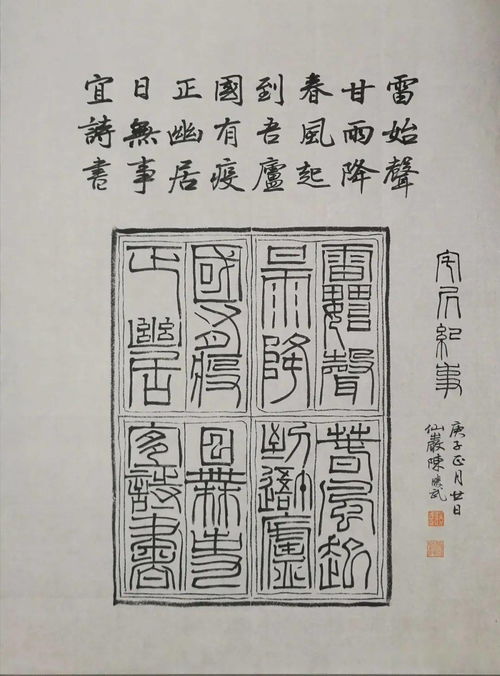 雷始聲
甘雨降
春風起
到吾廬
國有疫
正幽居
日無事
宜詩書
雷始聲
甘雨降
春風起
到吾廬
國有疫
正幽居
日無事
宜詩書
宅凥紀事
庚子正月廿日
仙巖陳武